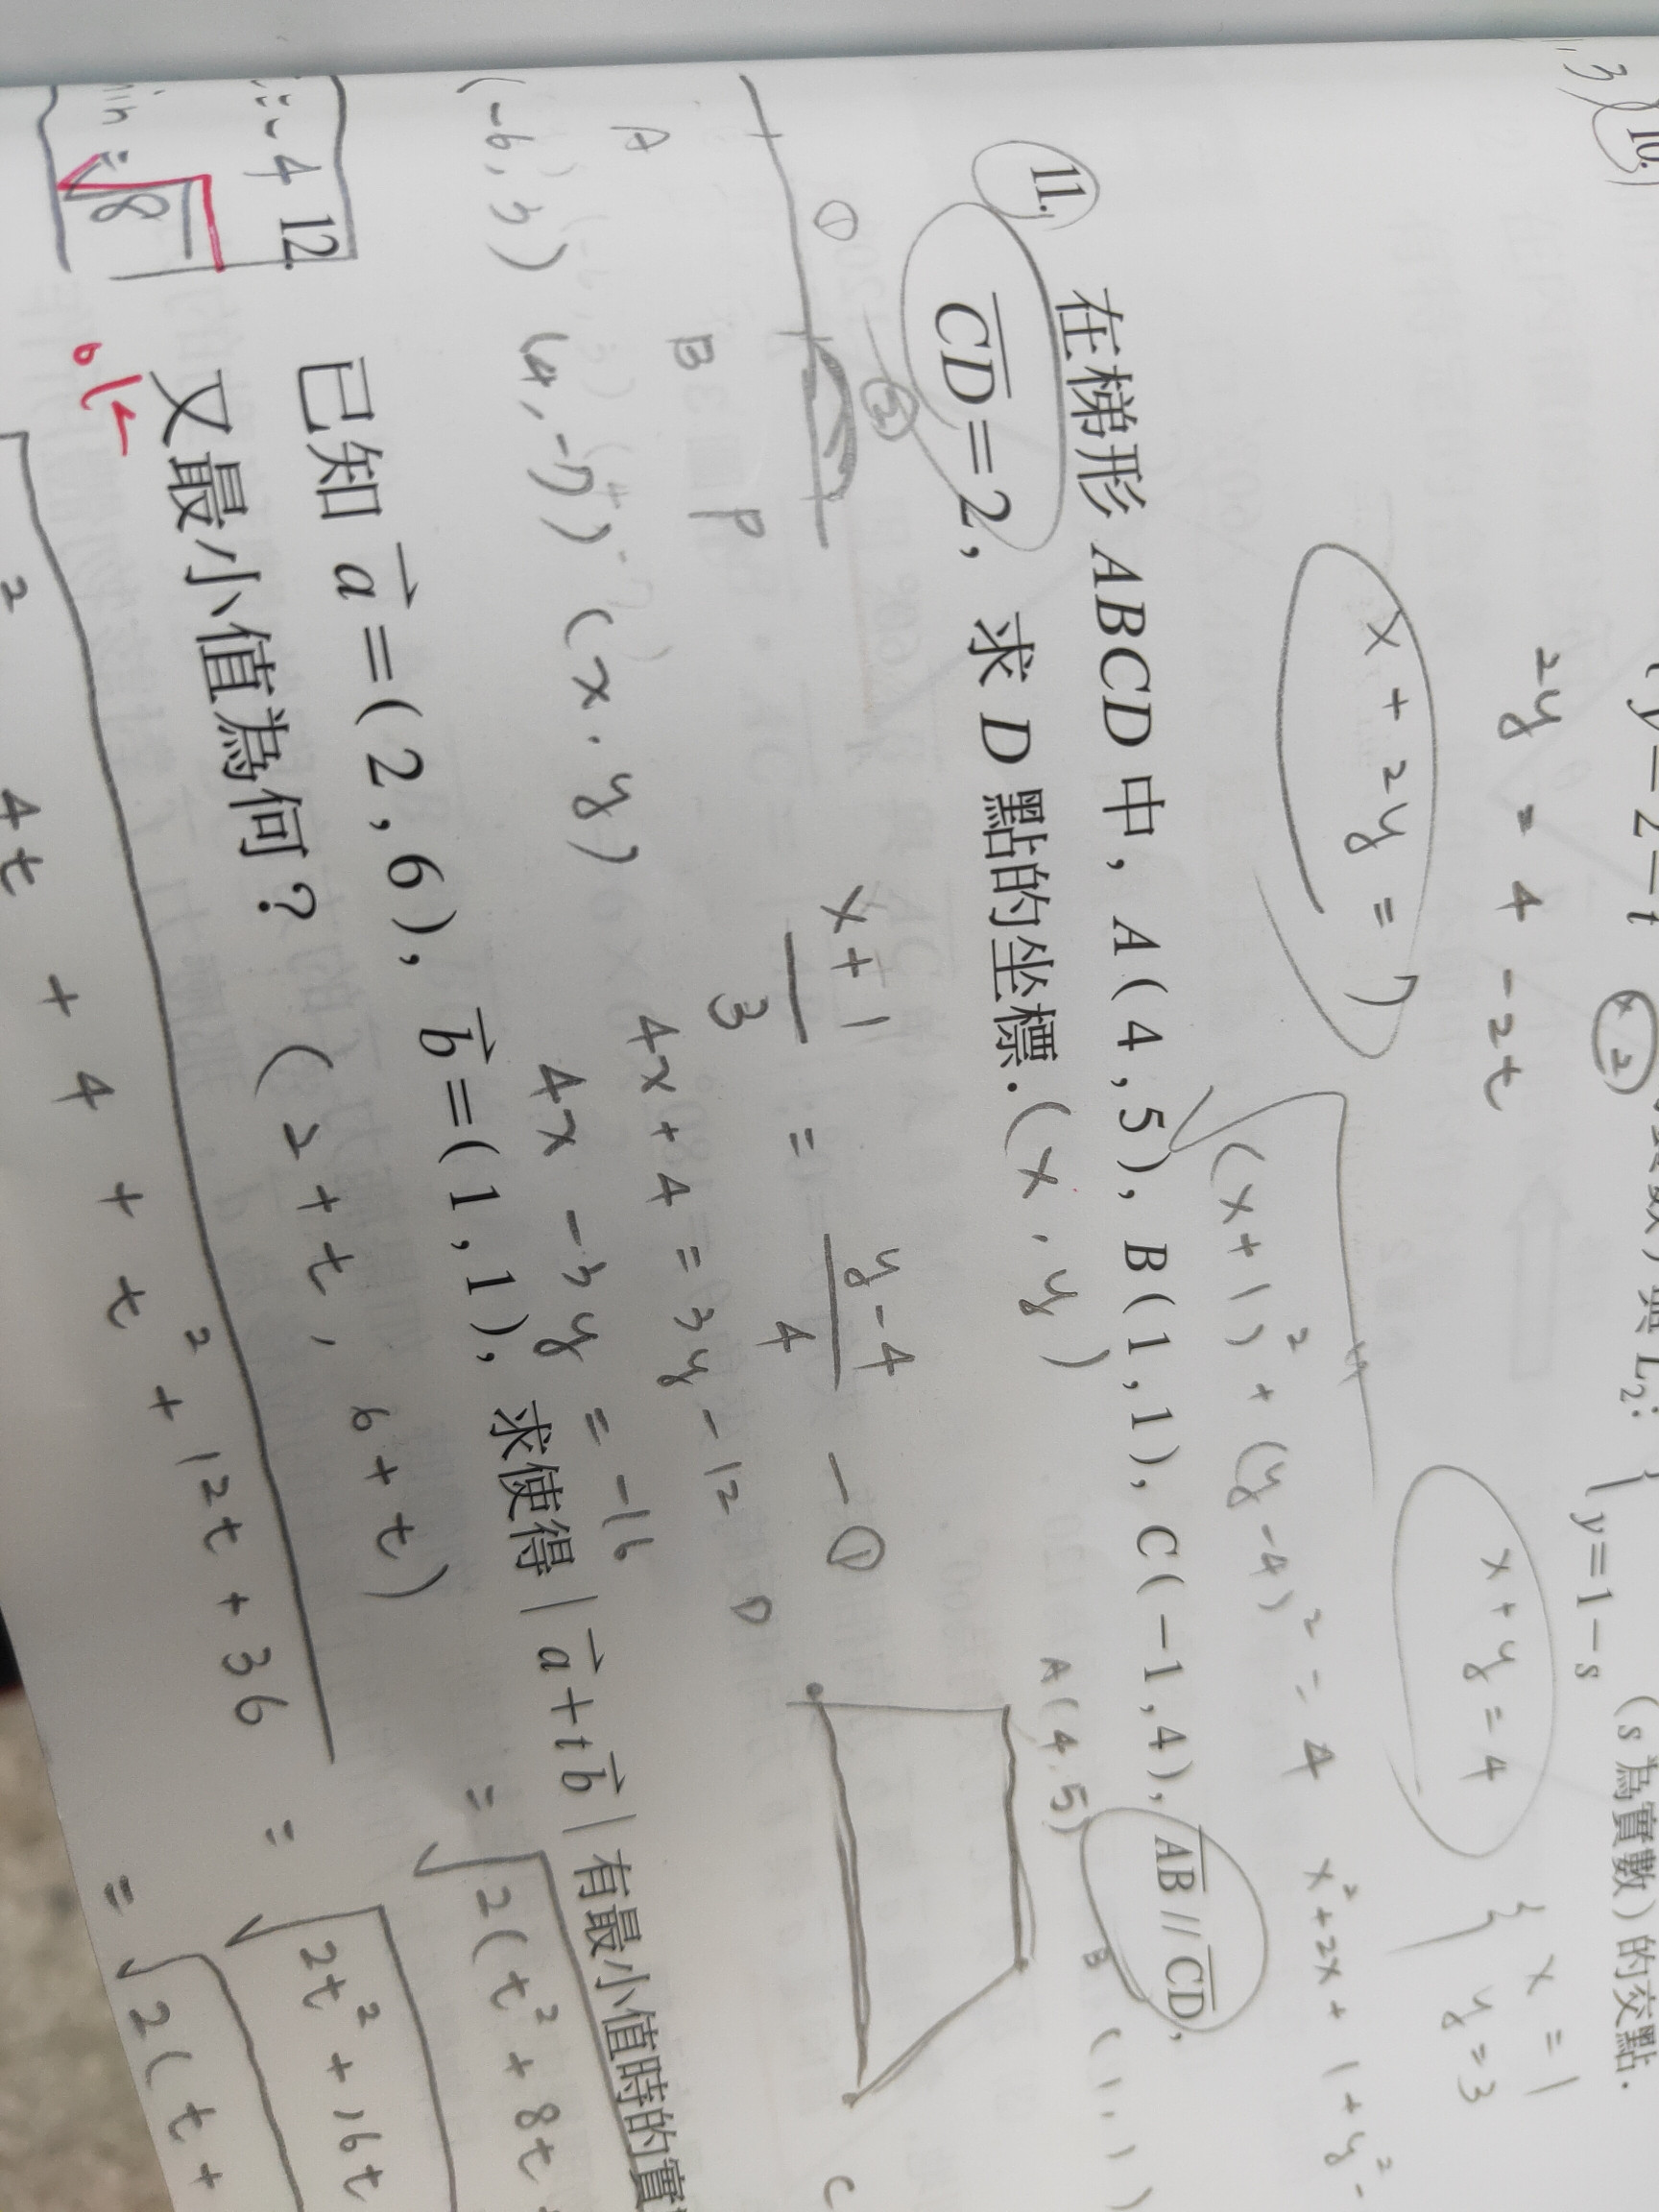 10.
(y=2-t
L₂:
y=1-s
(s為實數)的交點.
2y = 4 -2t
x + 2y = 7
x + y = 4
{ x = 1
y = 3
√(x+1)² + (y-4)² = 4
x²+2x+1+y²-
11. 在梯形 ABCD 中, A(4,5), B(1,1), C(-1,4), AB // CD,
CD = 2, 求 D 點的坐標. (x, y)
A(4,5)
B (1,1)
① ②
A B P
(-6,3) (4,-7) (x, y)
x+1/3 = y-4/4 -①
4x+4 = 3y-12
4x -3y = -16
D
C
12. 已知 a⃗ = (2,6), b⃗ = (1,1), 求使得 | a⃗ + t b⃗ | 有最小值時的實
又最小值為何? (2+t, 6+t)
4t + 4 + t² + 12t + 36
= √2t² + 16t
= √2(t² + 8t
= √2(t+
-4
√8